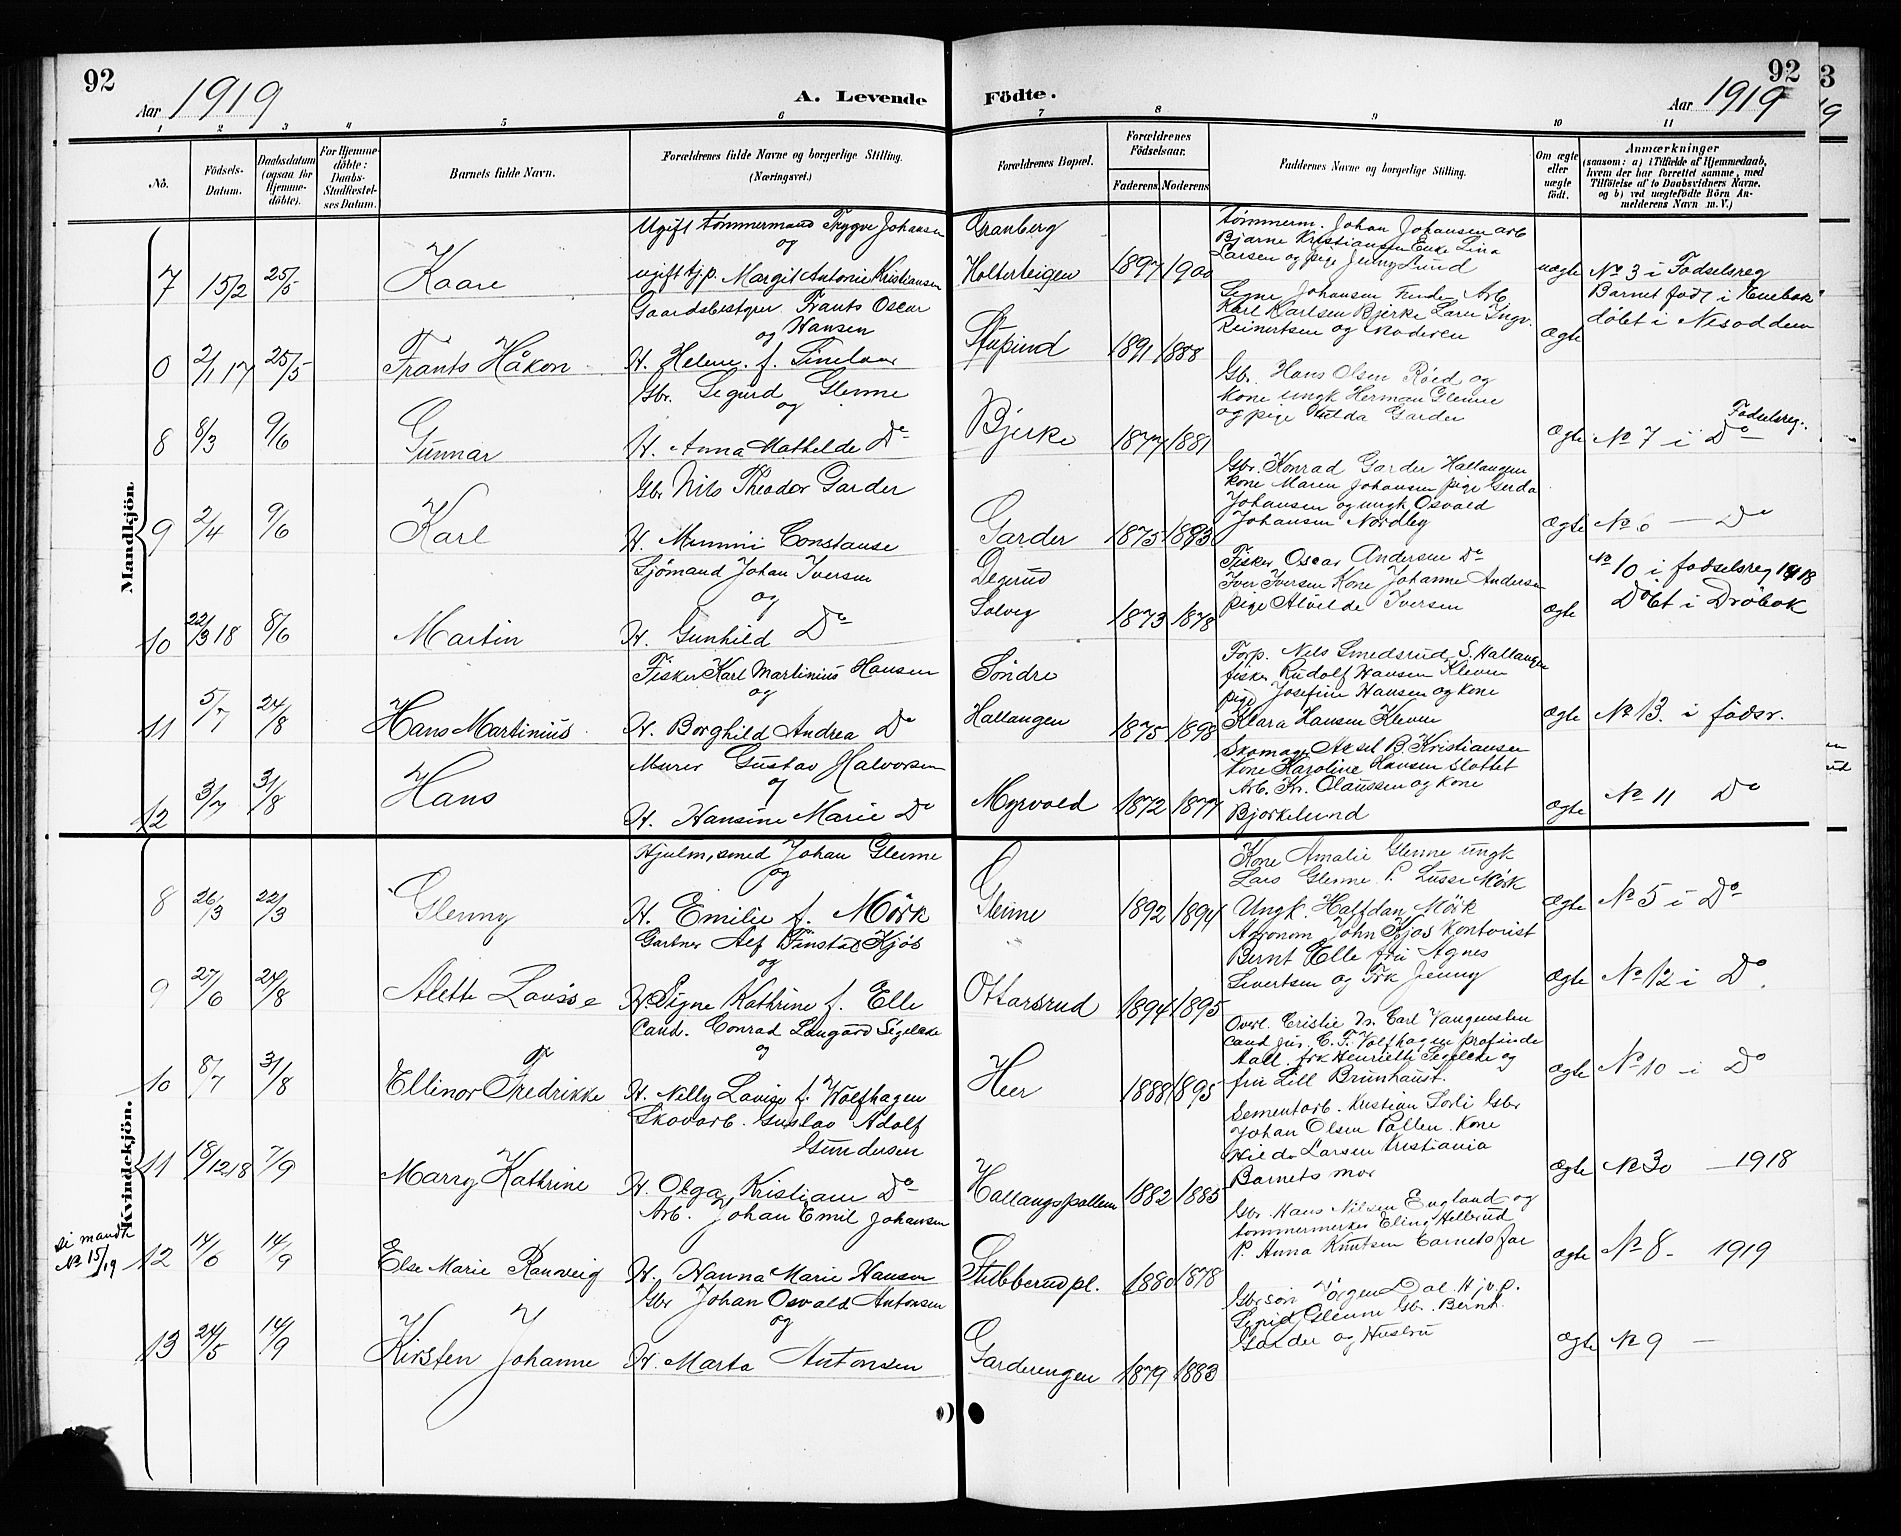 92
Aar 1919
A. Levende
Födte.
Aar 1919
92
1 2 3 4 5 6 7 8 9 10 11
No.
Födsels-Datum.
Daabsdatum (ogsaa for Hjemme-döbte).
For Hjemme-döbte: Daabs-Stadfæstel-ses Datum.
Barnets fulde Navn.
Forældrenes fulde Navne og borgerlige Stilling. (Næringsvei.)
Forældrenes Bopæl.
Forældrenes Födselsaar.
Faderens.
Moderens.
Faddernes Navne og borgerlige Stilling.
Om ægte eller uægte födt.
Anmærkninger
(saasom: a) i Tilfælde af Hjemmedaab, hvem der har forrettet samme, med Tilföielse af to Daabsvidners Navne. og b) ved uegtefödte Börn An-melderens Navn m. V.)
Mandkjön
7 15/2 25/5 Kaare
Ugift Tømmermand Trygve Johansen
og
ugift tjp. Margit Antonie Kristiansen
Granberg
Holterteigen 1897 1900
Tømmerm. Johan Johansen arb
Bjarne Kristiansen Enke Lina
Larsen og pige Jenny Lund
uægte No 3 i Fødselsreg
0 2/1 17 25/5 Frants Håkon
Gaardsbestyrer Frants Oscar
og Hansen
H. Helene f.
Stupind 1891 1888
Signe Johansen Arb.
Karl Karlsen Bjerke Lars Ingv.
Reinertsen og Moderen
ægte
Barnet født i Enebak
døbt i Nesodden
8 8/3 9/6 Gunnar
Gbr. Sigurd Glenne
og
H. Anna Mathilde Do
Bjerke 1877 1881
Gbr. Hans Olsen Röed og
Kone ungk Herman Glenne
og pige Hulda Garder
ægte No 7 i Do Fødselsreg.
9 2/4 9/6 Karl
Gbr Nils Theodor Garder
H. Mummi Constanse
Garder 1875 1893
Gbr. Konrad Garder Hallangen
Kone Maren Johansen pige Gerda
Johansen og ungk Osvald
Johansen Nordby
ægte No 6 — Do
10 22/3 18 8/6 Martin
Sjömand Johan Iversen
og
H. Gunhild Do
Degerud
Solvig 1873 1878
Fisker Oscar Andersen Do
Iver Iversen Kone Johanne Andersen
pige Alvilde Iversen
ægte No 10 i fødselsreg 1918
Døbt i Drøbak
11 5/7 24/8 Hans Martinius
Fisker Karl Martinius Hansen
og
H. Borghild Andrea Do
Söndre
Hallangen 1875 1898
Forp. Nels Smedsrud, S. Hallangen
fisker Rudolf Hansen Kleven
pige Josefine Hansen og kone
Klara Hansen Kleven
ægte No 13. i födsr.
12 3/7 31/8 Hans
Murer Gustav Halvorsen
og
H. Hansine Marie Do
Myrvold 1872 1877
Skomager Aksel B. Kristiansen
Kone Karoline Hansen Slottet
Arb. Kr. Olaussen og Kone
Bjorkelund
ægte No 11 Do
Kvindekjön.
8 26/3 22/3 Glenny
Hjulm, smed Johan Glenne
og
H. Emilie f. Mörk
Glenne 1892 1894
Kone Amalie Glenne ungk
Lars Glenne P. Lusse Mörk
Ungk. Halfdan Mörk
ægte No 5 i Do
9 27/6 24/8 Alette Lovise
Gartner Alf Kjös
og
H. Signe Kathrine f. Elle
Ottarsrud 1894 1895
Agronom John Kjøs Kontorist
Bernt Elle fru Agnes
Sivertsen og Frk Jenny
ægte No 12 i Do.
10 8/7 31/8 Ellinor Fredrikke
Cand. Conrad Langård Sigelcke
og
H. Nelly Lovise f. Wolfhagen
Heer 1888 1895
Overl. Cristie Dr. Carl Vangensten
Cand jur. C. F. Volfhagen
Aall. frk Henriette Sigelcke og
fru Lill Brunhaust.
ægte No 10 - i Do
11 18/12 18 7/9 Marry Kathrine
Skovarb. Gustav Adolf
Gundersen
H. Olga Kristiane Do
Hallangspollen 1882 1885
Sementarb. Kristian Sorli Gbr
Johan Olsen Pollen. Kone
Hilda Larsen Kristiania
Barnets mor
ægte No 30 — 1918
se mandk No 15/19
12 14/6 14/9 Else Marie Ranveig
Arb. Johan Emil Johansen
H. Hanna Marie Hansen
Stubberudpl. 1880 1878
Gbr. Hans Nilsen England og
tømmermerker Eling Hellerud
P. Anna Knutsen barnets far
ægte No 8 - 1919
13 24/5 14/9 Kirsten Johanne
Gbr Johan Osvald Antonsen
og
H. Marta Antonsen
Garderengen 1879 1883
Gbr søn Jörgen Dal. Hjvp.
Sigrid Glenne Gb. Bernh.
Garder og Hustru
ægte No 9 —